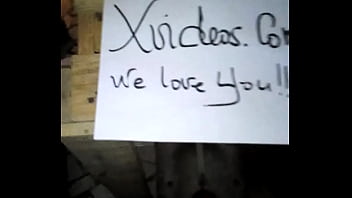 Xvideos.Co
We love you!!